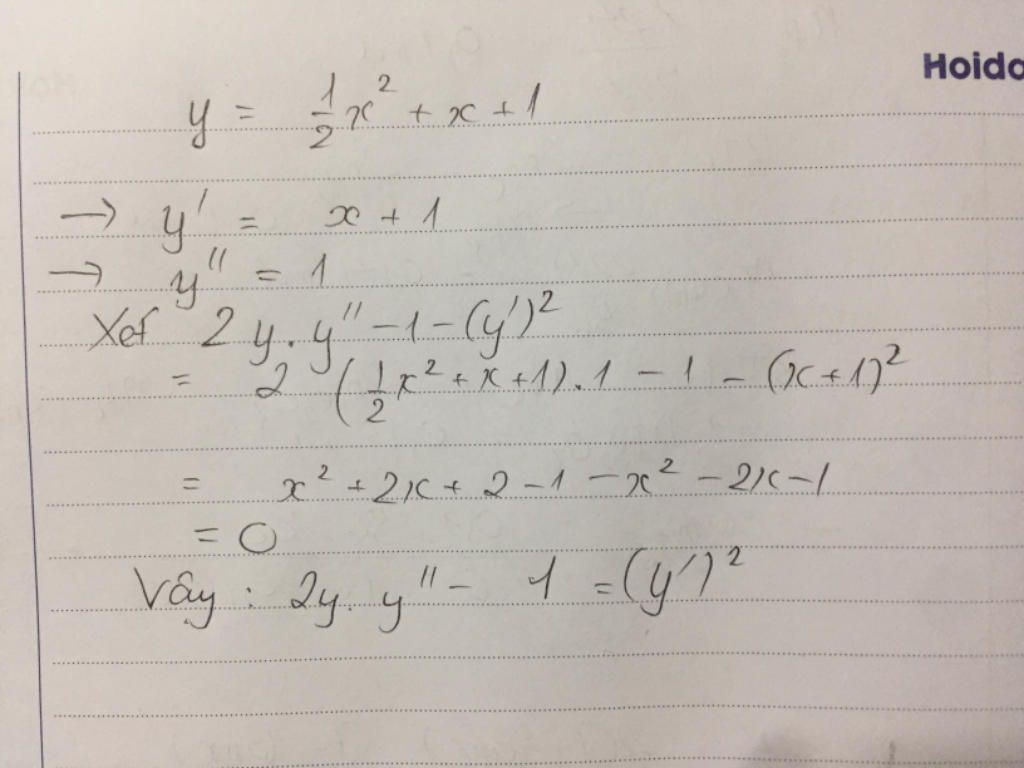 Hoido
y = 1/2 x² + x + 1
→ y' = x + 1
→ y'' = 1
Xét 2y.y'' - 1 - (y')²
= 2 (1/2 x² + x + 1).1 - 1 - (x + 1)²
= x² + 2x + 2 - 1 - x² - 2x - 1
= 0
Vậy : 2y.y'' - 1 = (y')²